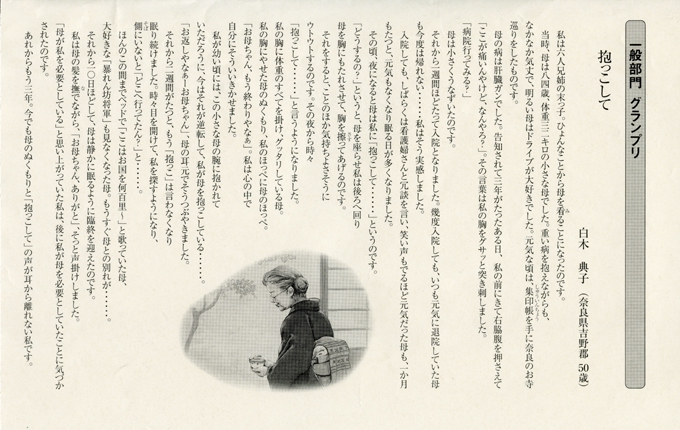 一般部門 グランプリ
抱っこして
白木 典子(奈良県吉野郡 50歳)
私は六人兄姉の末っ子。ひょんなことから母を看ることになったのです。
当時、母は八四歳、体重三二キロの小さな母でした。重い病を抱えながらも、
なかなか気丈で、明るい母はドライブが大好きでした。元気な頃は、集印帳を手に奈良のお寺
巡りをしたものです。
母の病は肝臓ガンでした。告知されて三年がたったある日、私の前にきて右脇腹を押さえて
「ここが痛いんやけど、なんやろ?」。その言葉は私の胸をグサッと突き刺しました。
「病院行ってみる?」
母は小さくうなずいたのです。
それから一週間ほどたって入院となりました。幾度入院しても、いつも元気に退院していた母
も今度は帰れない・・・・・私はそう実感しました。
入院しても、しばらくは看護婦さんと冗談を言い、笑い声もでるほど元気だった母も、一か月
もたつと、元気もなくなり眠る日が多くなりました。
その頃、夜になると母は私に「抱っこして・・・・・」というのです。
「どうするの?」というと、母を座らせ私は後ろへ回り
母を胸にもたれさせて、胸を擦ってあげるのです。
それをすると、ことのほか気持ちよさそうに
ウトウトするのです。その夜から時々
「抱っこして・・・・・」と言うようになりました。
私の胸に体重のすべてを掛け、グッタリしている母、
私の胸にやせた母のぬくもり、私のほっぺに母のほっぺ。
「お母ちゃん、もう終わりやなぁ」。私は心の中で
自分にそういいきかせました。
私が幼い頃には、この小さな母の腕に抱かれて
いただろうに、今はそれが逆転して、私が母を抱っこしている・・・・・。
「お返しやなぁーお母ちゃん」、母の耳元でそうつぶやきました。
それから一週間がたつと、もう「抱っこ」は言わなくなり
眠り続けました。時々目を開けて、私を探すようになり、
側にいないと「どこへ行ってたん?」と・・・・・。
ほんのこの間までベッドで「ここはお国を何百里〜」と歌っていた母、
大好きな「暴れん坊将軍」も見なくなった母。もうすぐ母との別れが・・・・・。
それから一〇日ほどして、母は静かに眠るように臨終を迎えたのです。
私は母の髪を撫でながら、「お母ちゃん、ありがと」、そっと声掛けしました。
「母が私を必要としている」と思い上がっていた私は、後に私が母を必要としていたことに気づか
されたのです。
あれからもう三年。今でも母のぬくもりと「抱っこして」の声が耳から離れない私です。